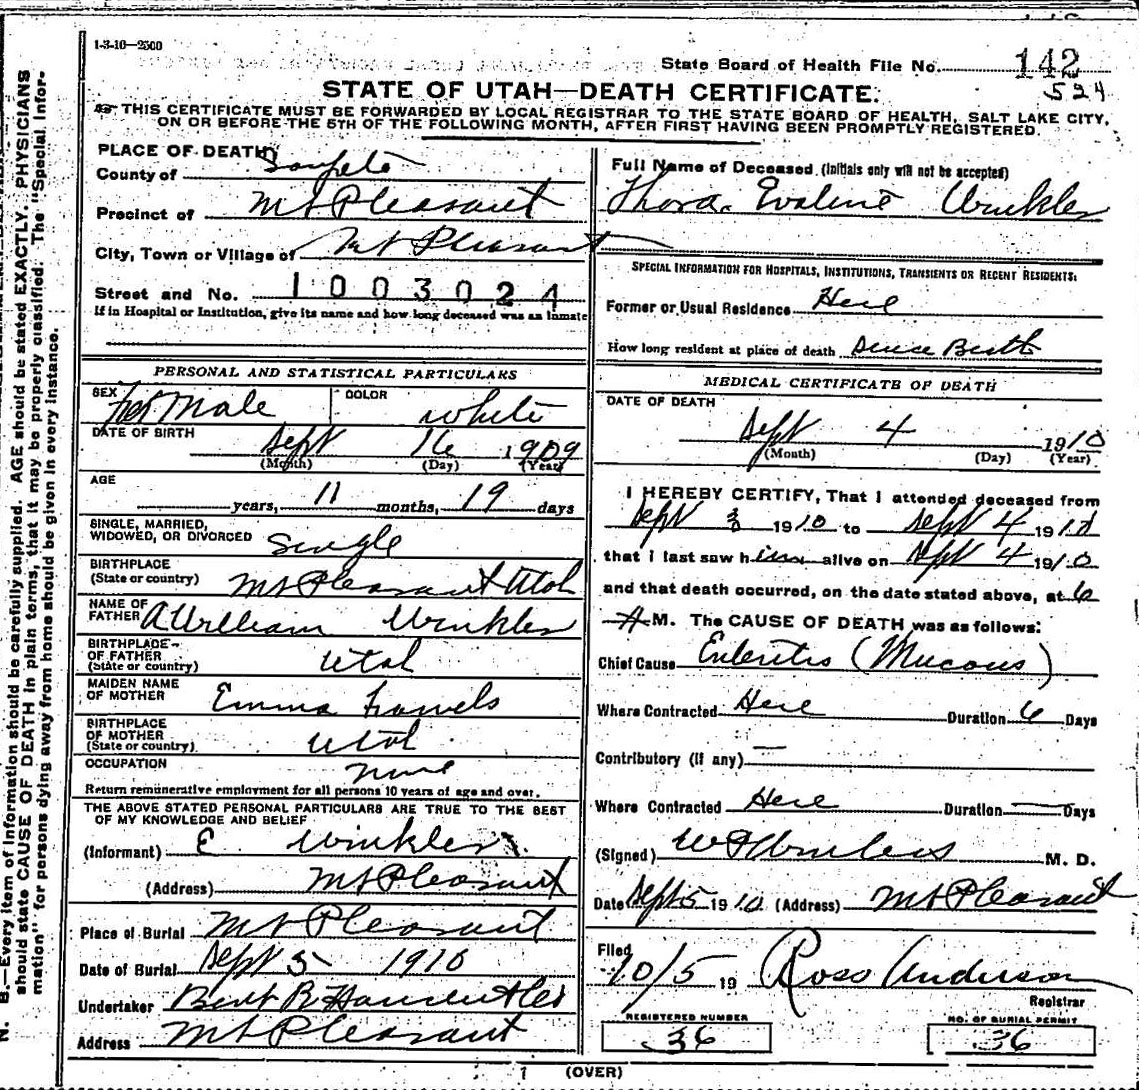 1-3-10—2500
State Board of Health File No. 142
524
STATE OF UTAH—DEATH CERTIFICATE.
THIS CERTIFICATE MUST BE FORWARDED BY LOCAL REGISTRAR TO THE STATE BOARD OF HEALTH, SALT LAKE CITY,
ON OR BEFORE THE 5TH OF THE FOLLOWING MONTH, AFTER FIRST HAVING BEEN PROMPTLY REGISTERED.
PLACE OF DEATH
County of Sanpete
Precinct of Mt Pleasant
City, Town or Village of Mt Pleasant
Street and No. 1003024
If in Hospital or Institution, give its name and how long deceased was an inmate
PERSONAL AND STATISTICAL PARTICULARS
SEX Male
COLOR white
DATE OF BIRTH Sept 16 1909
(Month) (Day) (Year)
AGE
years, 11 months, 19 days
SINGLE, MARRIED,
WIDOWED, OR DIVORCED Single
BIRTHPLACE
(State or country) Mt Pleasant Utah
NAME OF
FATHER William Winkler
BIRTHPLACE
OF FATHER
(State or country) Utah
MAIDEN NAME
OF MOTHER Emma
BIRTHPLACE
OF MOTHER
(State or country) Utah
OCCUPATION none
Return remunerative employment for all persons 10 years of age and over.
THE ABOVE STATED PERSONAL PARTICULARS ARE TRUE TO THE BEST
OF MY KNOWLEDGE AND BELIEF
(Informant) E Winkler
(Address) Mt Pleasant
Place of Burial Mt Pleasant
Date of Burial Sept 5 1910
Undertaker
Address Mt Pleasant
Full Name of Deceased (Initials only will not be accepted)
Thora Evaline Winkler
SPECIAL INFORMATION FOR HOSPITALS, INSTITUTIONS, TRANSIENTS OR RECENT RESIDENTS:
Former or Usual Residence Here
How long resident at place of death Since Birth
MEDICAL CERTIFICATE OF DEATH
DATE OF DEATH
Sept 4 1910
(Month) (Day) (Year)
I HEREBY CERTIFY, That I attended deceased from
Sept 3 1910 to Sept 4 1910
that I last saw him alive on Sept 4 1910
and that death occurred, on the date stated above, at 6
A M. The CAUSE OF DEATH was as follows:
Chief Cause Enteritis (Mucous)
Where Contracted Here Duration 6 Days
Contributory (if any) —
Where Contracted Here Duration — Days
(Signed) M. D.
Date Sept 5 1910 (Address) Mt Pleasant
Filed
10/5 19 Ross Anderson
Registrar
REGISTERED NUMBER
36
NO. OF BURIAL PERMIT
36
(OVER)
N. B.—Every item of information should be carefully supplied. AGE should be stated EXACTLY. PHYSICIANS
should state CAUSE OF DEATH in plain terms, that it may be properly classified. The "Special Infor-
mation" for persons dying away from home should be given in every instance.